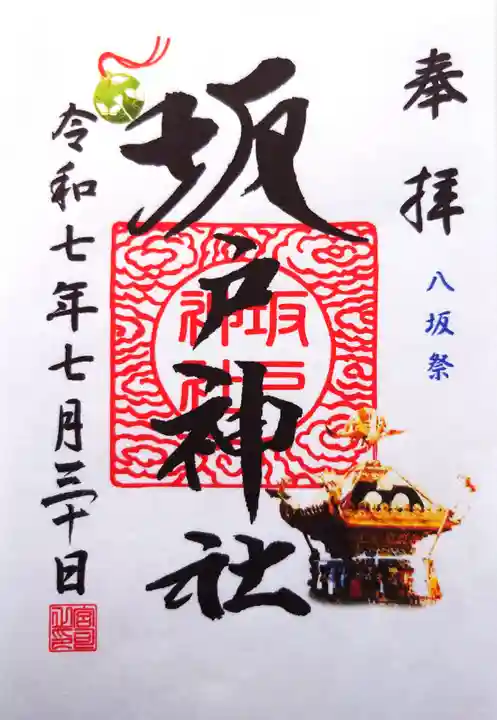 奉拝
八坂祭
坂戸神社
坂戸
神社
令和七年七月三十日